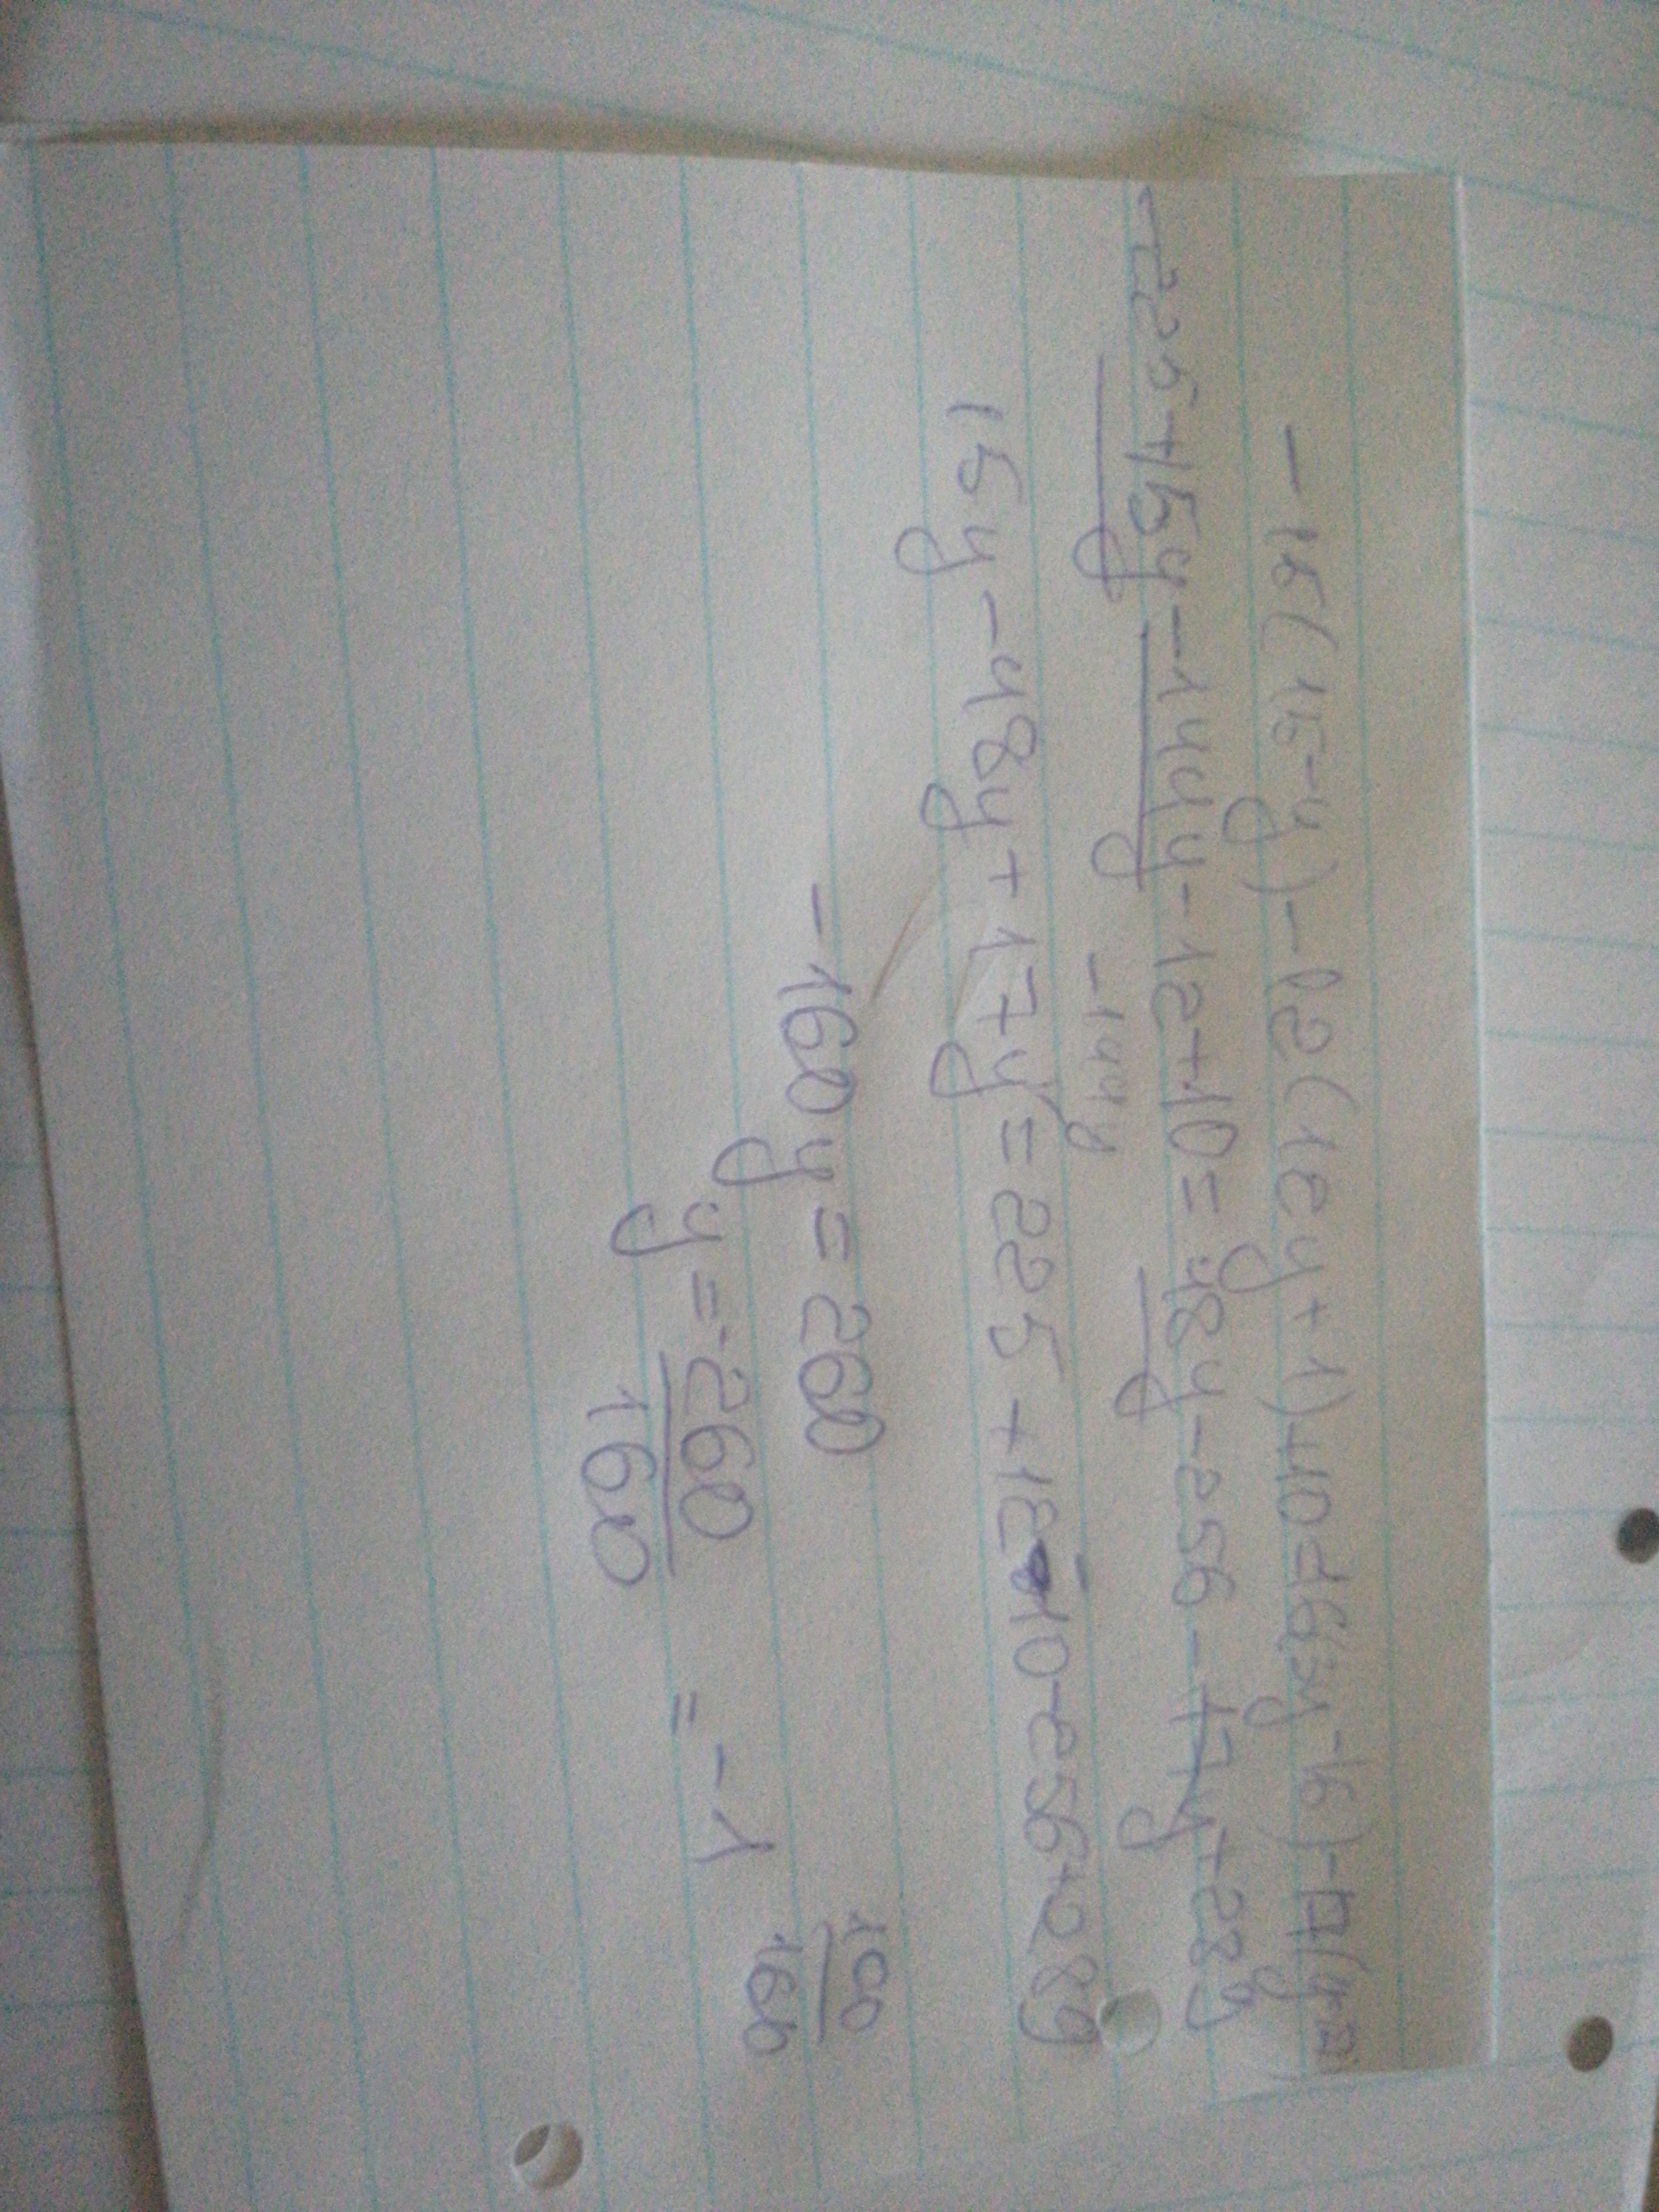 -15(15-y)-12(12y+1)+10=16(3y-16)-17(y-17)
-225+15y-144y-12+10=48y-256-17y+289
-144y
15y-48y+17y=225+12-10-256+289
-160y=260
y=-260/160 = -1 100/160